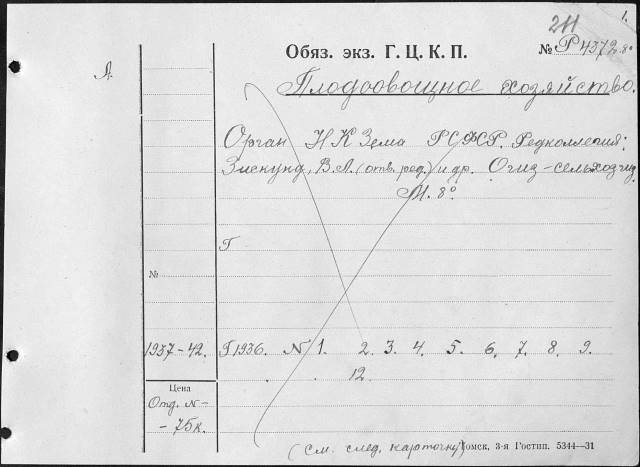 1.
211
Обяз. экз. Г. Ц. К. П.
№ Р 4372 8°
А
Плодоовощное хозяйство.
Орган НКЗема РСФСР. Редколлегия:
Зискунд, В.А. (отв. ред.) и др. Огиз-сельхозгиз
М. 8°
Г
№
1937-42. Г 1936. N 1. 2. 3. 4. 5. 6. 7. 8. 9.
12.
Цена
Отд. N-
- 75к.
(см. след. карточку) Томск, 3-я Гостип. 5344—31